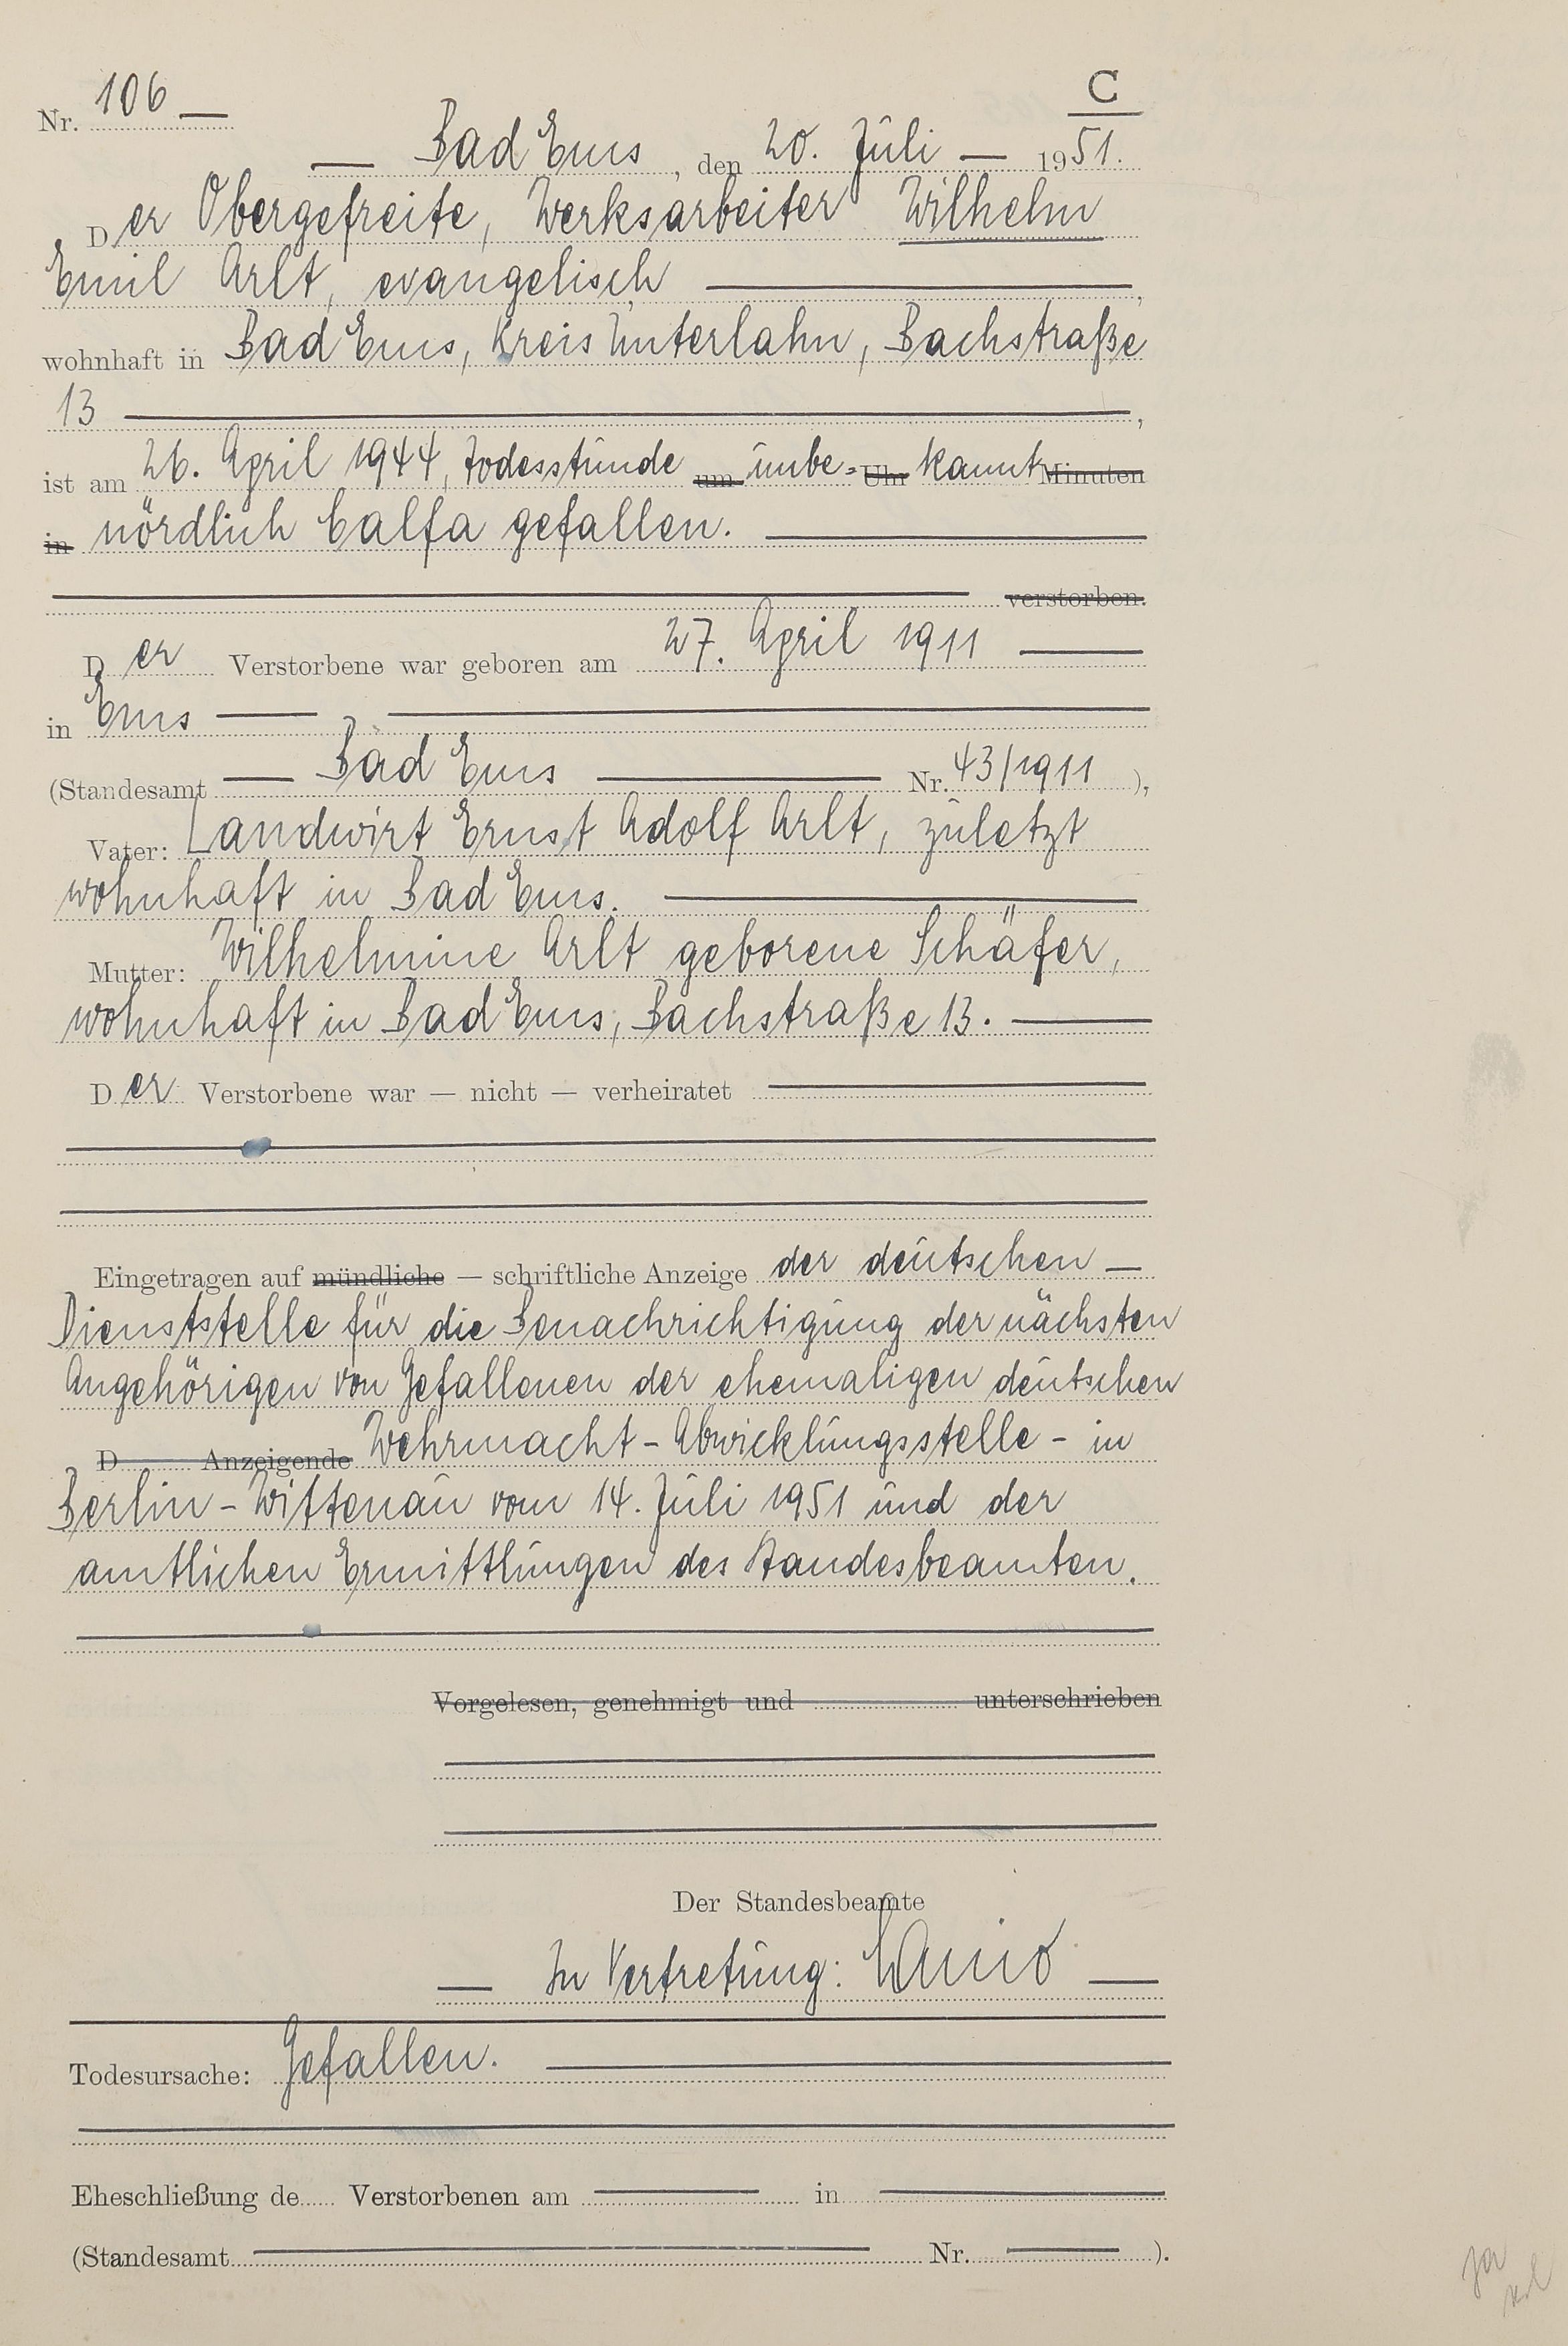 C
Nr. 106 —
— Bad Ems, den 20. Juli — 1951.
Der Obergefreite, Werksarbeiter Wilhelm
Emil Arlt, evangelisch —,
wohnhaft in Bad Ems, Kreis Unterlahn, Bachstraße
13 —,
ist am 26. April 1944, Todesstunde um unbe- Uhr kannt Minuten
in nördlich Calfa gefallen. —
— verstorben.
Der Verstorbene war geboren am 27. April 1911 —
in Ems — —
(Standesamt — Bad Ems — Nr. 43/1911),
Vater: Landwirt Ernst Adolf Arlt, zuletzt
wohnhaft in Bad Ems. —
Mutter: Wilhelmine Arlt geborene Schäfer,
wohnhaft in Bad Ems, Bachstraße 13. —
Der Verstorbene war — nicht — verheiratet —
Eingetragen auf mündliche — schriftliche Anzeige der deutschen —
Dienststelle für die Benachrichtigung der nächsten
Angehörigen von Gefallenen der ehemaligen deutschen
D Anzeigende Wehrmacht - Abwicklungsstelle - in
Berlin - Wittenau vom 14. Juli 1951 und der
amtlichen Ermittlungen des Standesbeamten.
Vorgelesen, genehmigt und unterschrieben
Der Standesbeamte
— In Vertretung: —
Todesursache: Gefallen. —
Eheschließung de Verstorbenen am — in —
(Standesamt — Nr. —).